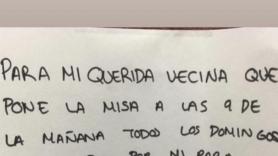 PARA MI QUERIDA VECINA QUE
PONE LA MISA A LAS 9 DE
LA MAÑANA TODOS LOS DOMINGOS
POR MI PARA